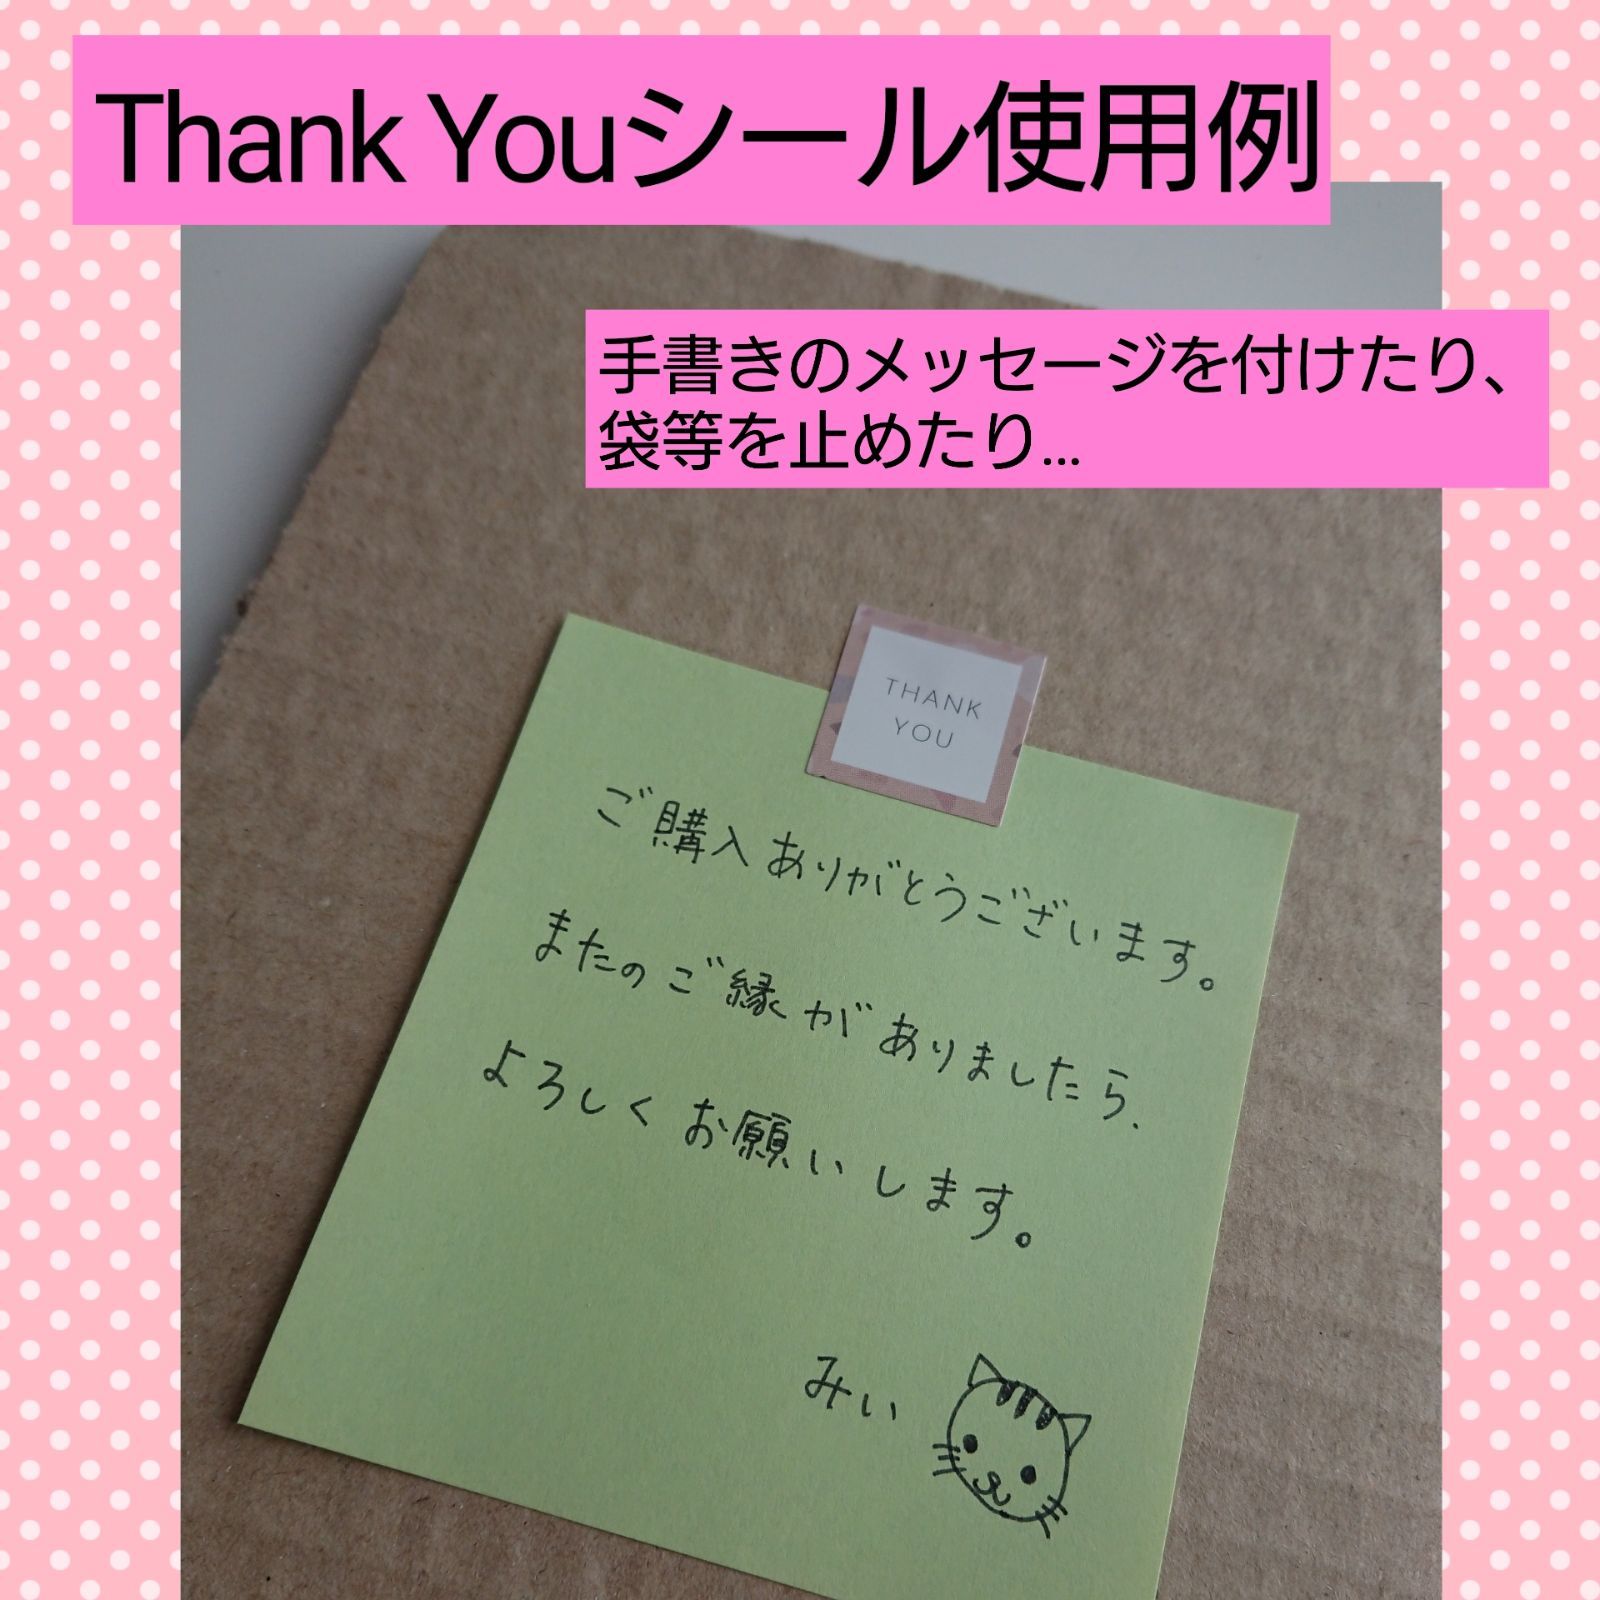 Thank Youシール使用例
手書きのメッセージを付けたり、
袋等を止めたり...
THANK
YOU
ご購入ありがとうございます。
またのご縁がありましたら、
よろしくお願いします。
みい